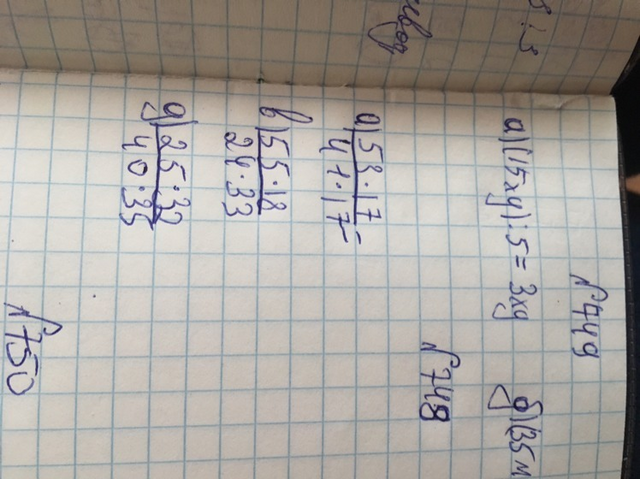 № 749
а) (15xy) : 5 = 3xy б) (35м
№ 748
а) 58 · 17
47 · 17 =
в) 55 · 18
24 · 33
д) 25 · 32
40 · 35
№ 750